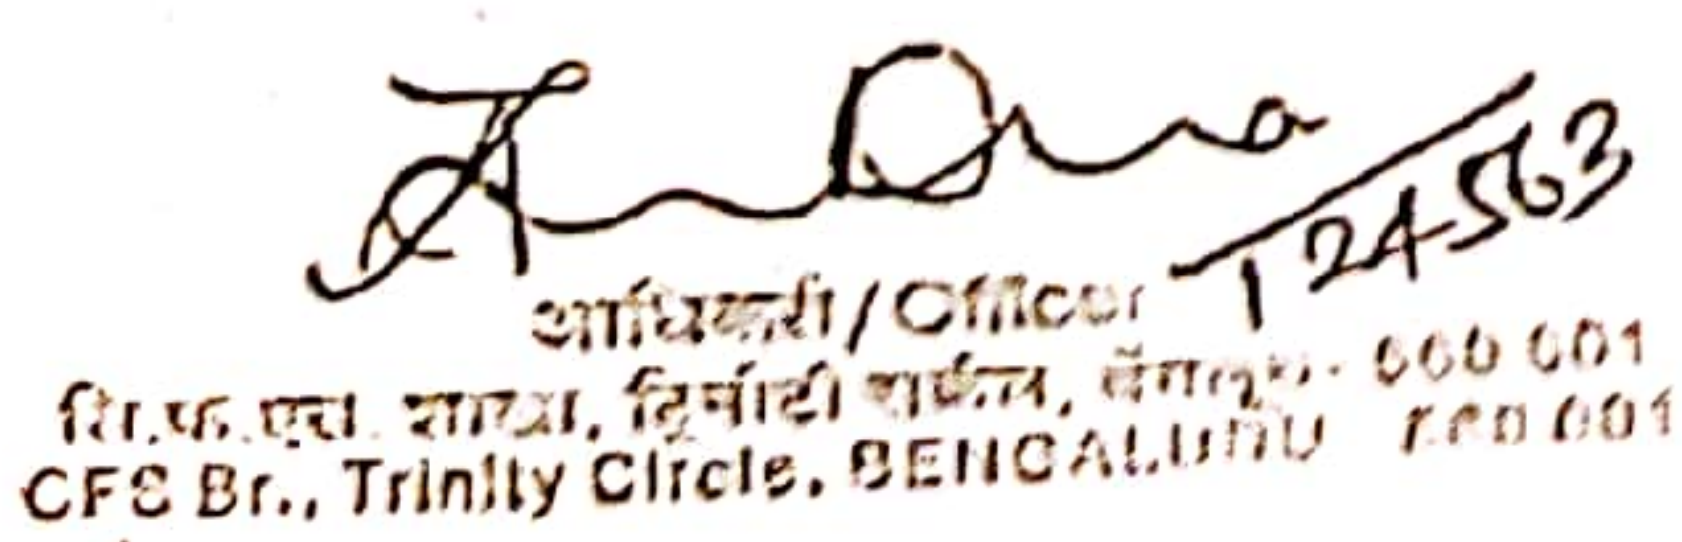 124563
अधिकारी/Officer
सि.फ.एस. शाखा, ट्रिनीटी सर्कल, बेंगलूरु- 560 001
CFS Br., Trinity Circle, BENGALURU 560 001